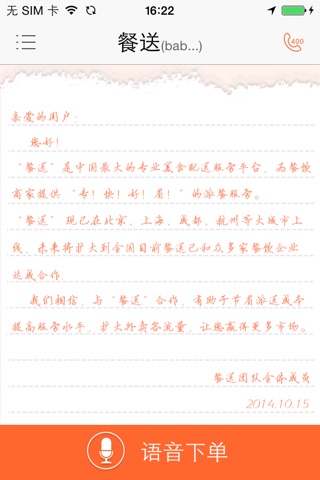 无 SIM 卡 16:22
餐送(bab...)
400
亲爱的用户:
您好!
“餐送”是中国最大的专业美食配送服务平台，为餐饮
商家提供“专！快！好！省！”的派餐服务。
“餐送” 现已在北京、上海、成都、杭州等大城市上
线，未来将扩大到全国目前餐送已和众多家餐饮企业
达成合作.
我们相信，与“餐送”合作，有助于节省派送成本
提高服务水平，扩大外卖客流量，让您赢得更多市场。
餐送团队全体成员
2014.10.15
语音下单